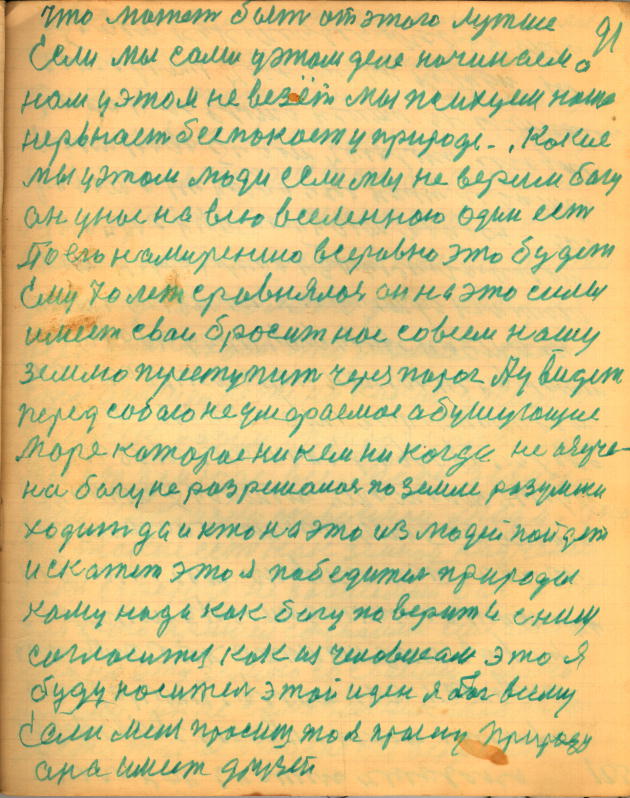 91
что может быт от этого лутше
Если мы сами у этом деле начинаем а
нам у этом не везёт мы психуем наша
нервнает беспокоет у природе. Какие
мы у этом люди если мы не верим богу
он у нас на всю вселенною один ест
По его намирению всеравно это будет
Ему 40 лет сравнялося он на это силы
имеет сваи бросит нас совсем нашу
землю переступит через порог Ау видет
перед собою не умираемае а бушующие
Море каторае ни кем ни когда не
на богу не разрешалося по земле
ходит да и кто на это из людей пойдет
и скажет это я победител природы
каму нада как богу паверит и с ним
согласится как из человекам это я
буду носител этой идеи я бог всему
Если меня просиш то я прошу Природу
ана имеет друзей